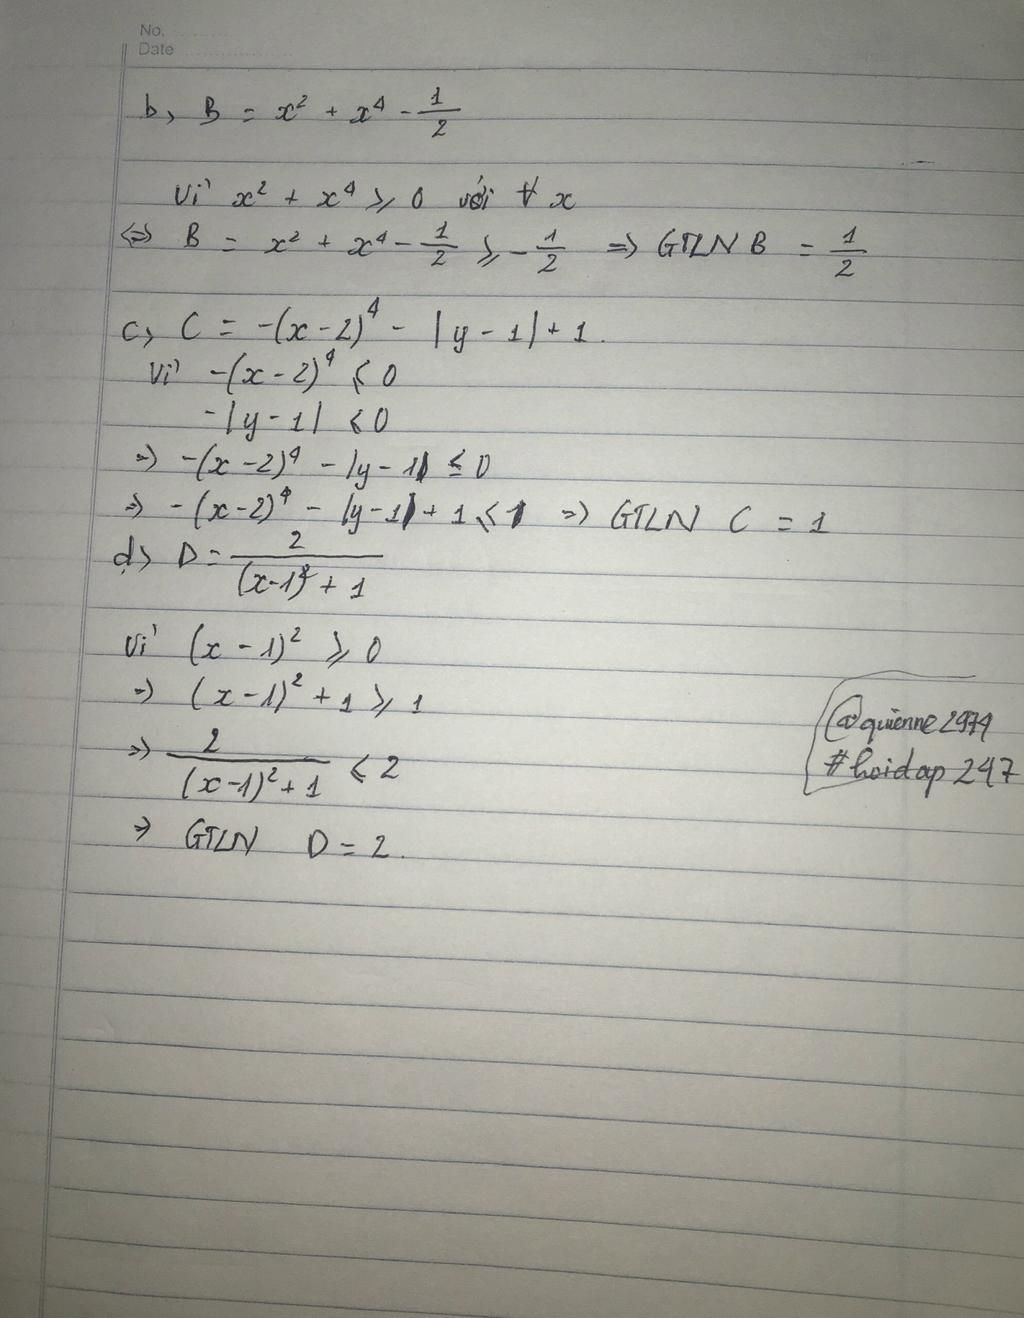 No.
Date
b, B = x² + x⁴ - 1/2
Vì x² + x⁴ ≥ 0 với ∀ x
<=> B = x² + x⁴ - 1/2 ≥ - 1/2 => GTLN B = 1/2
c, C = -(x - 2)⁴ - |y - 1| + 1.
Vì -(x - 2)⁴ ≤ 0
-|y - 1| ≤ 0
=> -(x - 2)⁴ - |y - 1| ≤ 0
=> -(x - 2)⁴ - |y - 1| + 1 ≤ 1 => GTLN C = 1
d, D = 2/((x-1)² + 1)
Vì (x - 1)² ≥ 0
=> (x - 1)² + 1 ≥ 1
=> 2/((x-1)² + 1) ≤ 2
=> GTLN D = 2.
@quienne2974
#hoidap247